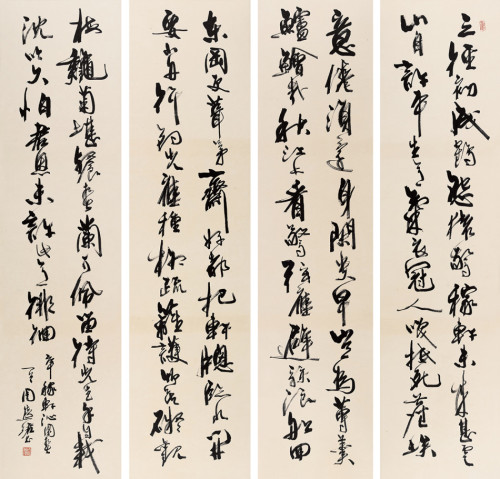 三徑初成鶴怨猿驚稼軒未來甚雲
山自許平生意氣衣冠人笑抵死塵埃
意倦須還身閒貴早豈為蓴羹
鱸鱠哉秋江上看驚弦雁避駭浪船回
東岡更葺茅齋好都把軒窗臨水開
要小舟行釣先應種柳疏籬護竹莫礙觀
梅秋菊堪餐春蘭可佩留待先生手自栽
沈吟久怕君恩未許此意徘徊
辛稼軒沁園春
周慧珺書